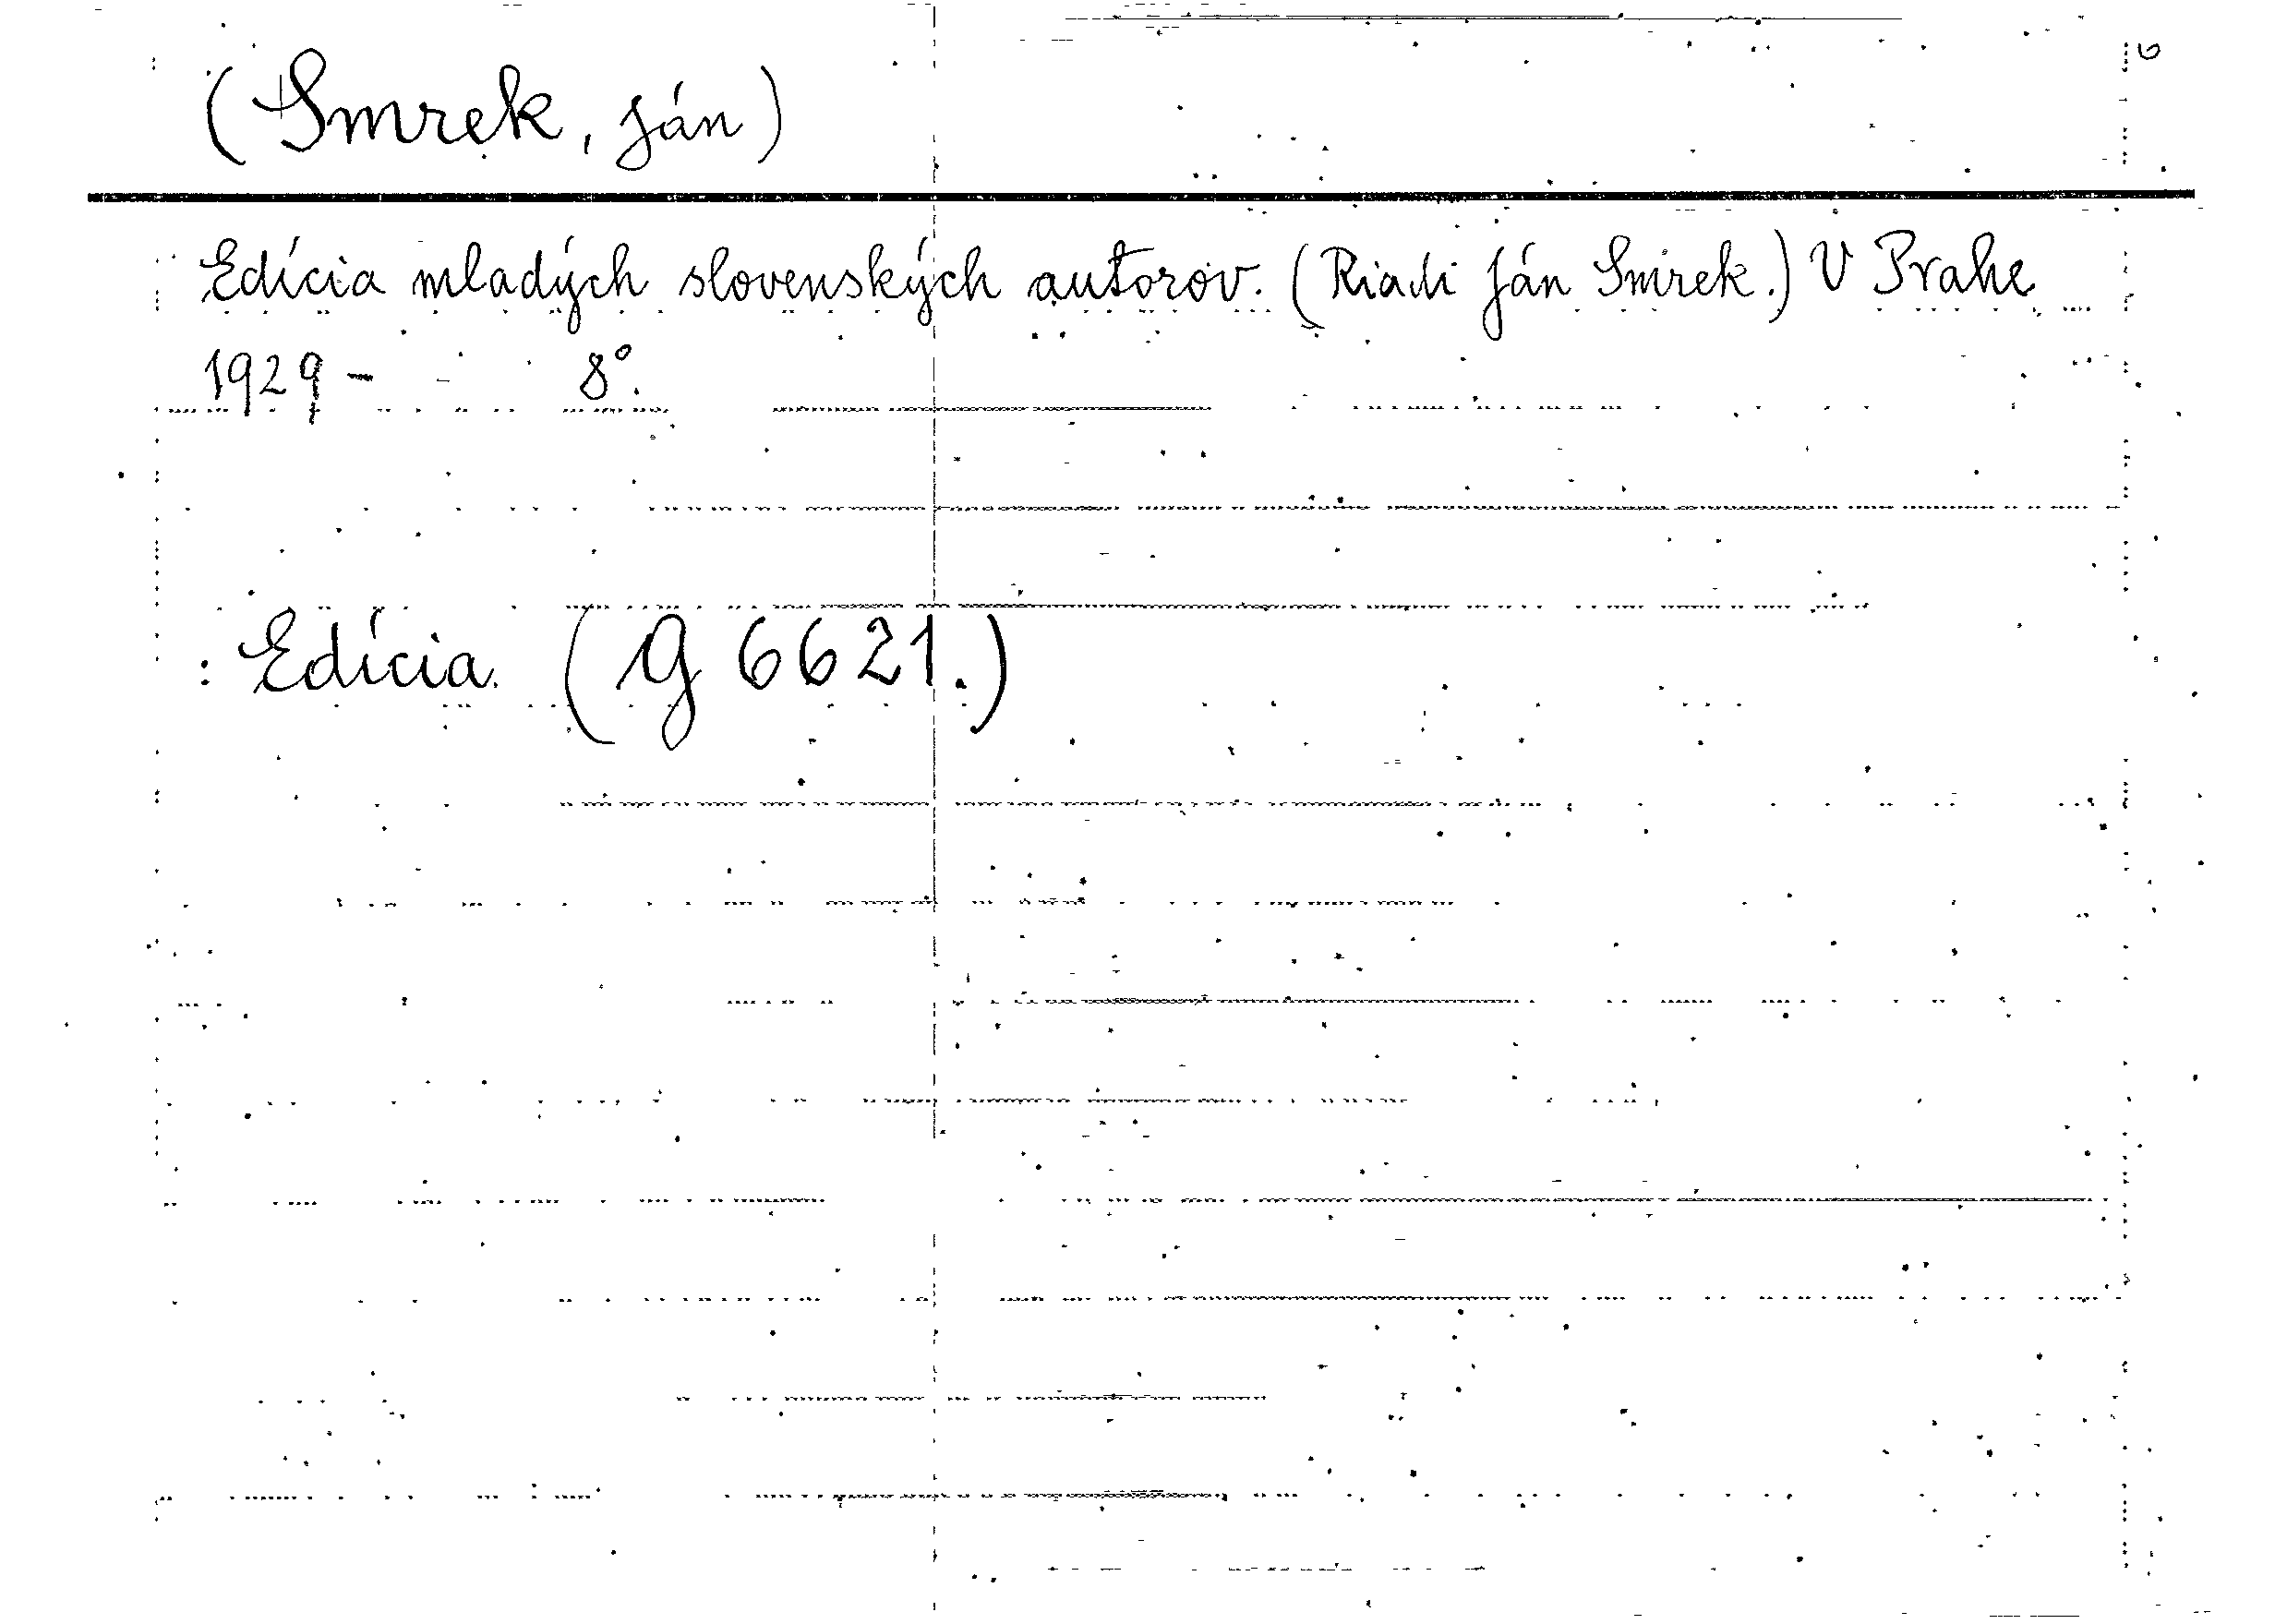 (Smrek, Ján)
Edícia mladých slovenských autorov. (Riadi Ján Smrek.) V Prahe
1929 - 8°.
: Edícia. (G 6621.)